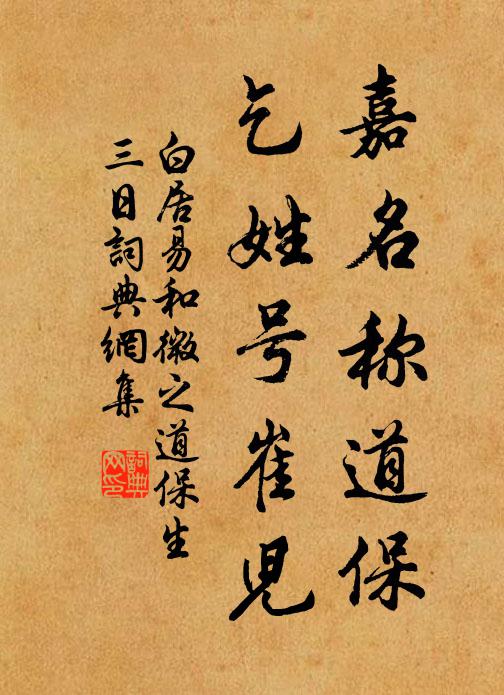 嘉名称道保
乞姓号崔児
白居易和微之道保生
三日詞典網集
詞典網印